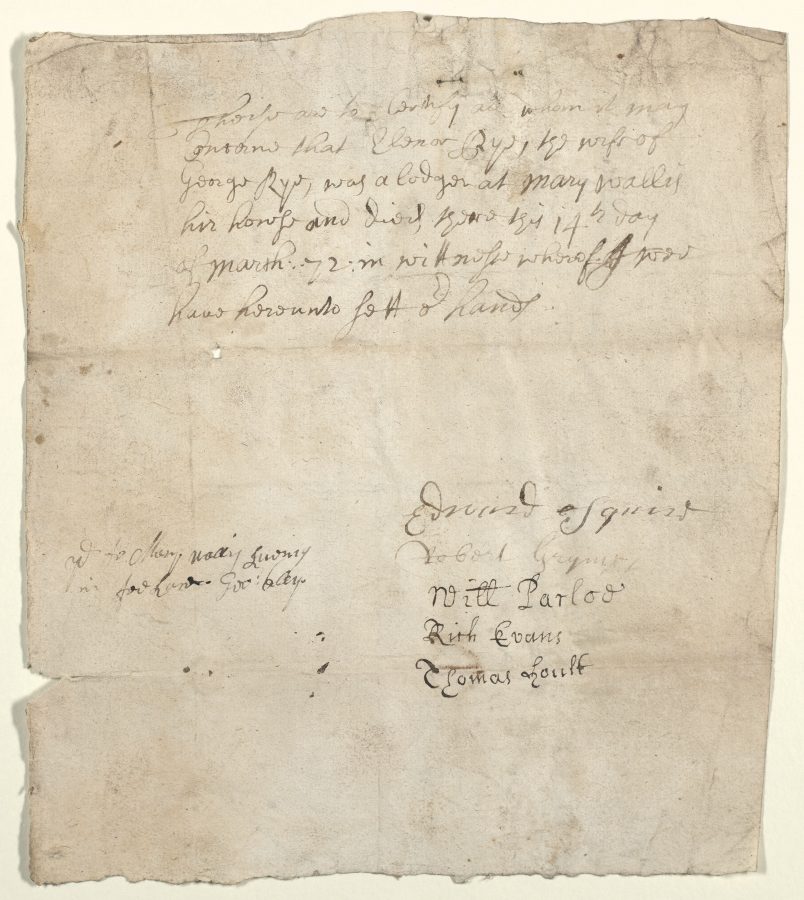 Theise are to Certify all whom it may
Concerne that Elenor Rye, the wife of
George Rye, was a lodger at Mary Wallis
hir howse and died there this 14th day
of March: 72: in wittnesse whereof wee
have hereunto sett or hands
Edward Squire
Robert Gryme
Will Parloe
Rich Evans
Thomas Hoult
to Mary Wallis liveing
in